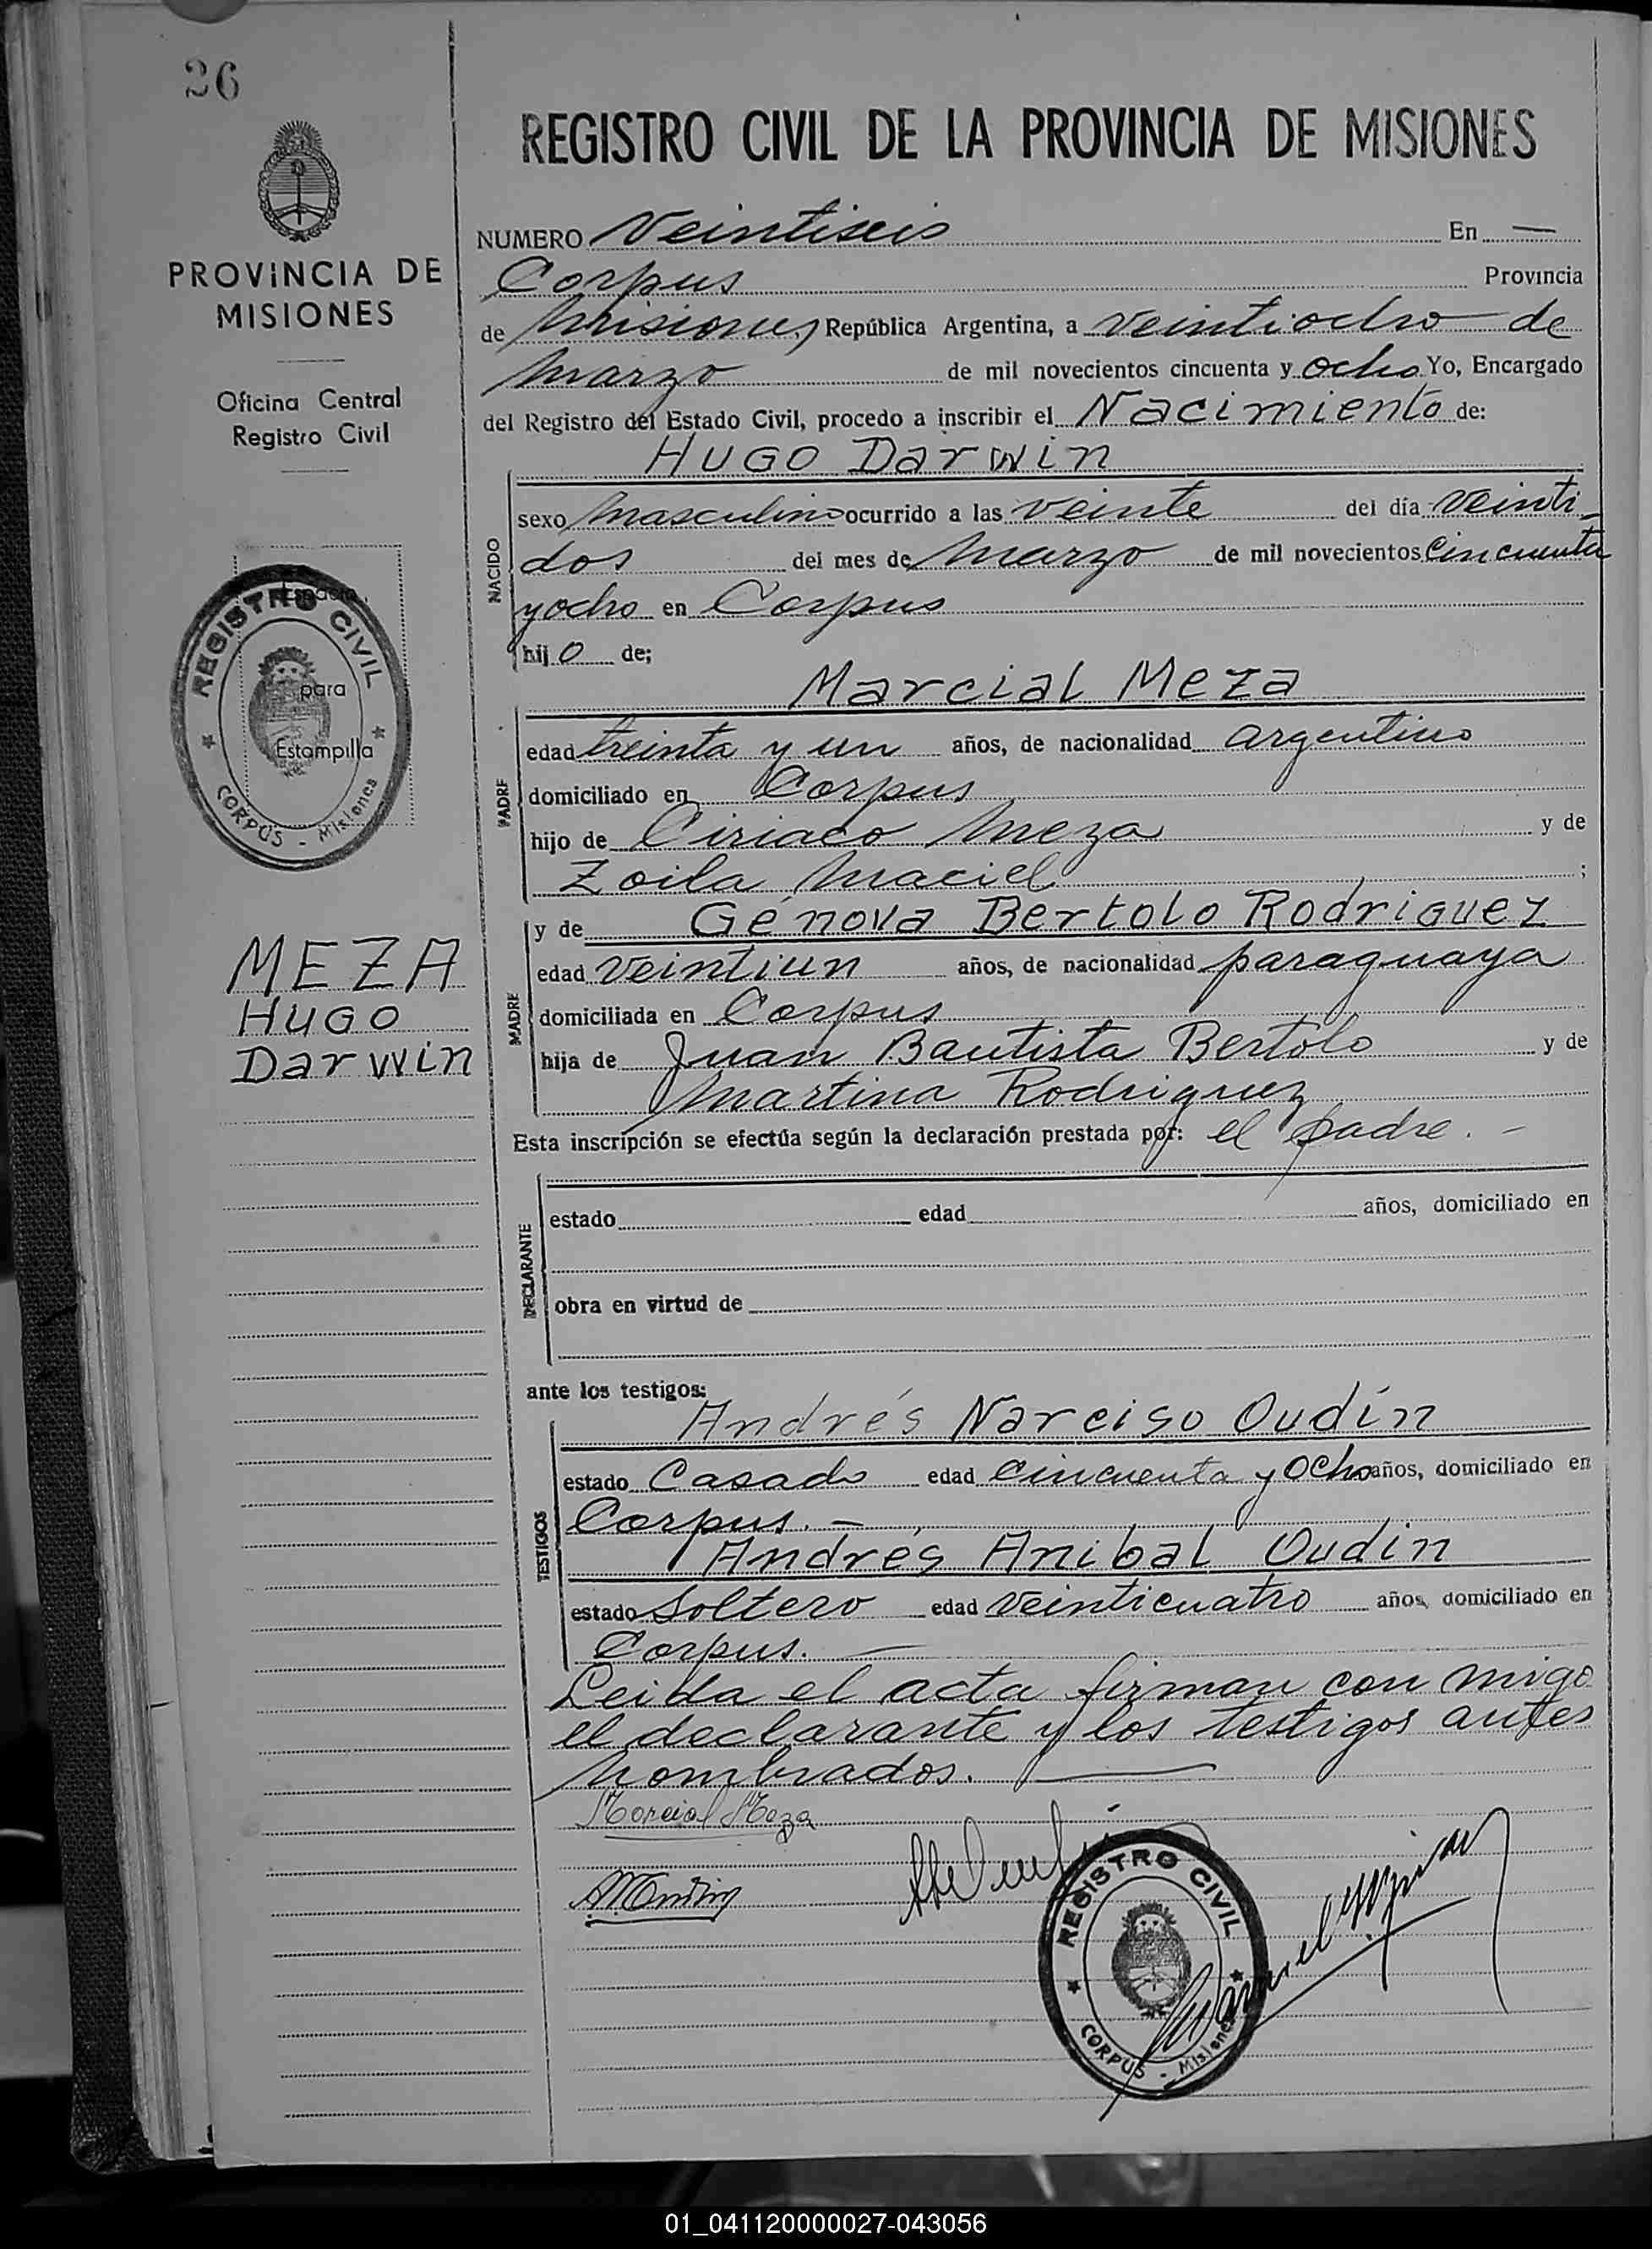 26
PROVINCIA DE
MISIONES
Oficina Central
Registro Civil
REGISTRO CIVIL
Espacio
para
Estampilla
CORPUS - Misiones
MEZA
HUGO
Darwin
REGISTRO CIVIL DE LA PROVINCIA DE MISIONES
NUMERO Veintiseis En —
Corpus Provincia
de Misiones, República Argentina, a veintiocho de
Marzo de mil novecientos cincuenta y ocho Yo, Encargado
del Registro del Estado Civil, procedo a inscribir el Nacimiento de:
HUGO Darwin
NACIDO
sexo masculino ocurrido a las veinte del día veinti-
dos del mes de Marzo de mil novecientos cincuenta
y ocho en Corpus
hij o de;
Marcial Meza
PADRE
edad treinta y un años, de nacionalidad argentino
domiciliado en Corpus
hijo de Ciriaco Meza y de
Zoila Maciel ;
y de Génova Bertolo Rodriguez
MADRE
edad veintiun años, de nacionalidad paraguaya
domiciliada en Corpus
hija de Juan Bautista Bertolo y de
Martina Rodriguez
Esta inscripción se efectúa según la declaración prestada por: el padre. -
DECLARANTE
estado edad años, domiciliado en
obra en virtud de
ante los testigos:
Andrés Narciso Oudín
TESTIGOS
estado Casado edad cincuenta y ocho años, domiciliado en
Corpus. -
Andrés Anibal Oudin
estado Soltero edad veinticuatro años, domiciliado en
Corpus. —
Leida el acta firman con migo
el declarante y los testigos antes
nombrados. —
Marcial Meza
REGISTRO CIVIL
CORPUS - Misiones
01_041120000027-043056